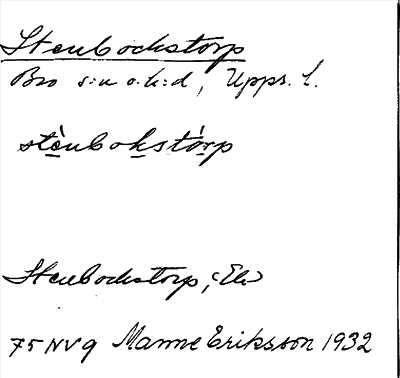 Stenbockstorp
Bro s:n o. h:d, Upps. l.
stènbokstórp
Stenbockstorp, <Ek>
75 NV 9 Manne Eriksson 1932